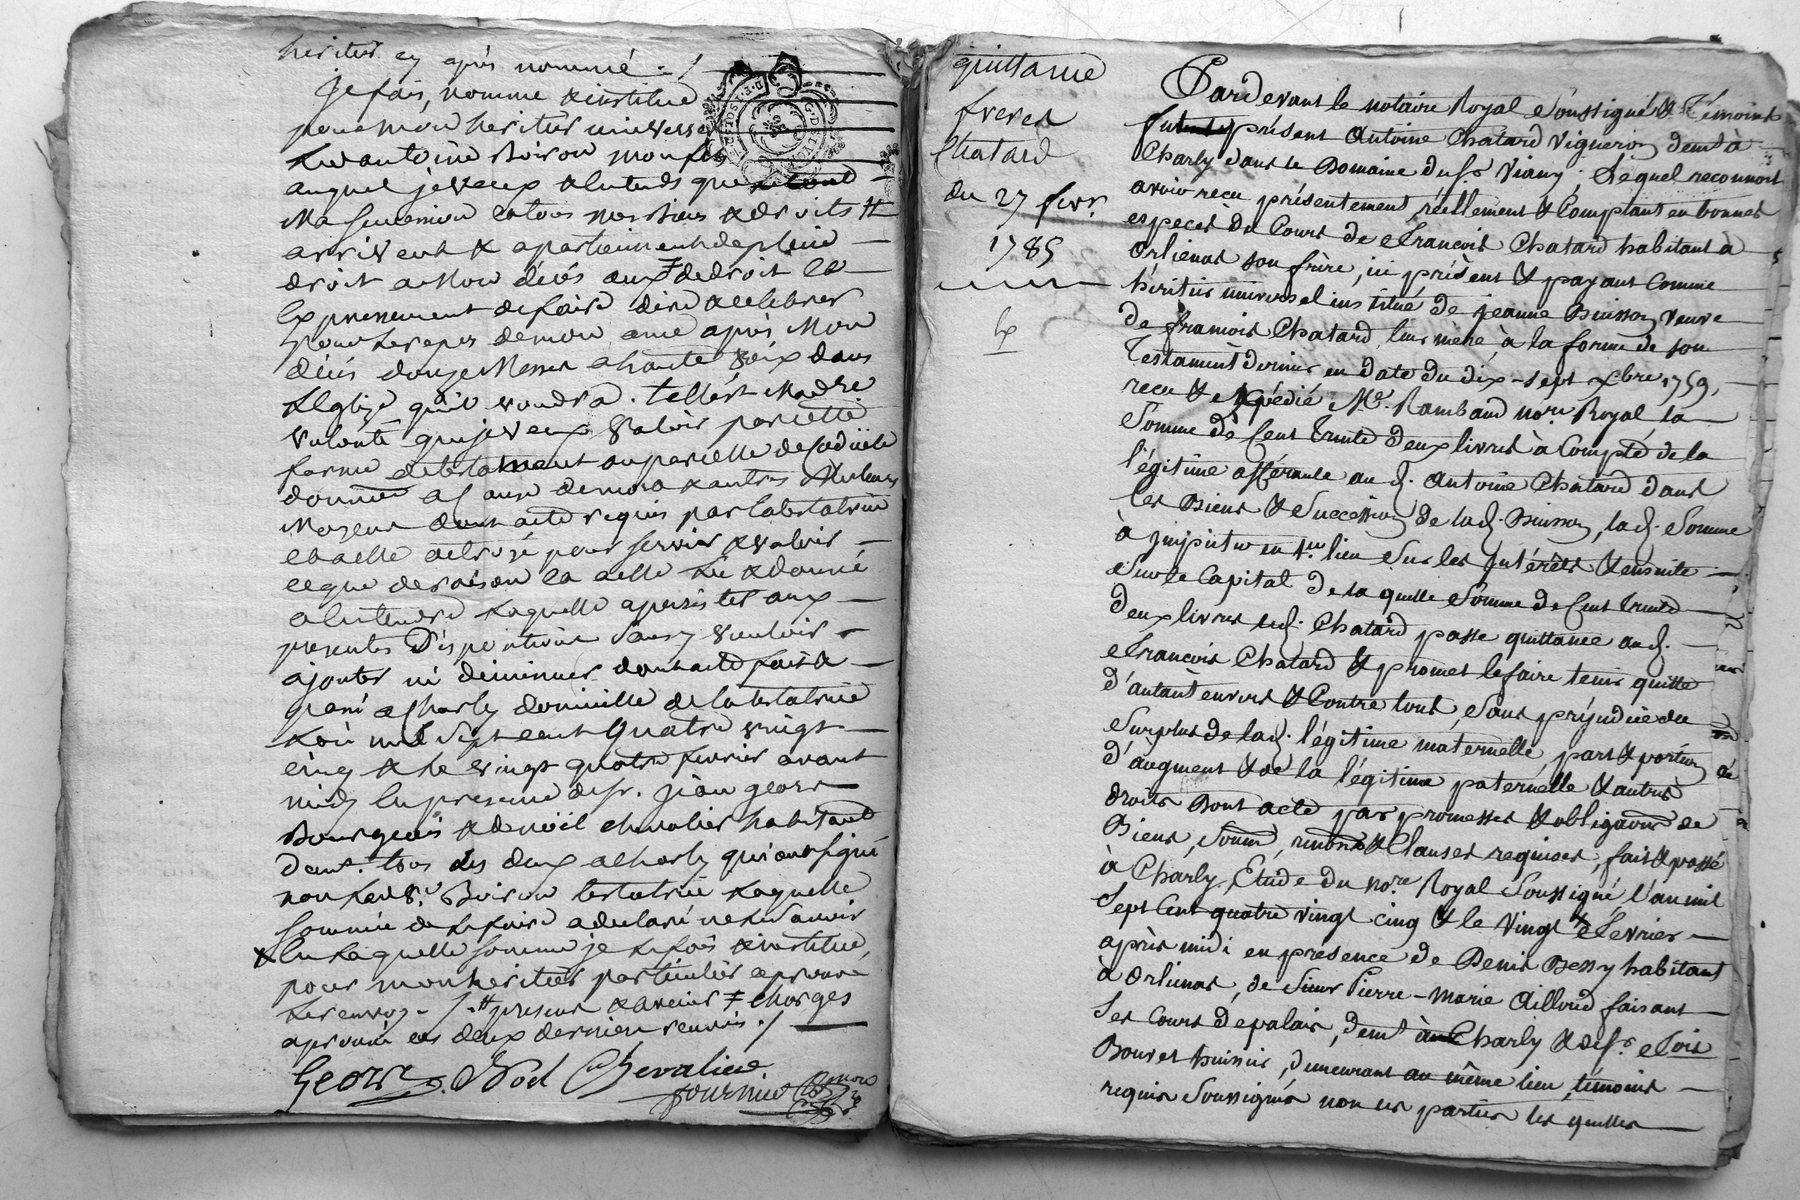 heritier cy après nommé
Je fais, nomme & institue
pour mon heritier universel
antoine Boiron mon fils
auquel je veux & entends que
Ma succession & tous mes biens & droits #
arrivent & apartiennent de plein
droit a mon décés aux ≠ de droit &
Expressement de faire dire & celebrer
pour le repos de mon ame après Mon
décés douze Messes a haute voix dans
L'Eglize qu'il voudra. telle est Ma dre
volonté que je veux valoir par cette
forme de testament ou par celle de codicile
donnation a cause de mort & autres Meilleurs
Moyens dont acte requis par la testatrice
& a elle octroyé pour servir & valoir
ce que de raison & a elle lu & donné
a entendre laquelle a persisté aux
presentes Dispositions sans y vouloir
ajouter ni diminuer dont acte fait &
passé a Charly domicille de la testatrice
L'an mil sept cent quatre vingt
cinq & le vingt quatre fevrier avant
midy En presence de sr. Jean george
Bourgeois & de noël chevalier habitant
demt. tous les deux a Charly qui ont signé
non lad. ve. Boiron testatrice laquelle
sommée de le faire a declaré ne le savoir
x En laquelle somme je le fais & institue,
pour mon heritier particulier aprouvé
le renvoy. / # present & avenir ≠ charges
aprouvé les deux derniers renvois ./
George. Noël Chevalier
fournier
G. DE LYON
quittance
freres
Chatard
du 27 fevr.
1785
Pardevant le notaire Royal Soussigné & Témoins
fut présent Antoine Chatard Vigneron demt à
Charly dans le Domaine du Sr Viany; Lequel reconnoit
avoir reçu présentement réellement & Comptant en bonnes
especes du Cours de François Chatard habitant à
Orlienas son frère, ici présent & payant Comme
héritier universel institué de jeanne Buisson veuve
de françois Chatard, leur mère, à la forme de son
Testament dernier en date du dix-sept xbre 1759,
recu & expédié Me. Rambaud nore Royal la
Somme de Cent trente deux livres à Compte de la
l'égitime afférante au d. Antoine Chatard dans
les Biens & Succession de lad. Buisson, lad. Somme
à imputer en 1er lieu Sur les Intérêts & ensuite
Sur le Capital De la quelle Somme de Cent trente
deux livres led. Chatard passe quittance aud.
François Chatard & promet le faire tenir quitte
d'autant envers & Contre tous, Sans préjudice du
Surplus de lad. l'égitime maternelle, part & portion
d'augment & de la légitime paternelle & autres
droits Dont acte par promesses & obligaons de
Biens, Soumon, renonons & Clauses requises, fait & passé
à Charly, Etude du nore Royal Soussigné L'an mil
Sept Cent quatre vingt cinq & le Vingt Fevrier
après midi en présence de Denis Bessy habitant
à Orlienas, de Sieur Pierre-Marie Ailloud faisant
Ses Cours de palais, demt à Charly & de Sr Elois
Bouvet huissier, demeurant au même lieu, témoins
requis Soussignés non les parties les quelles